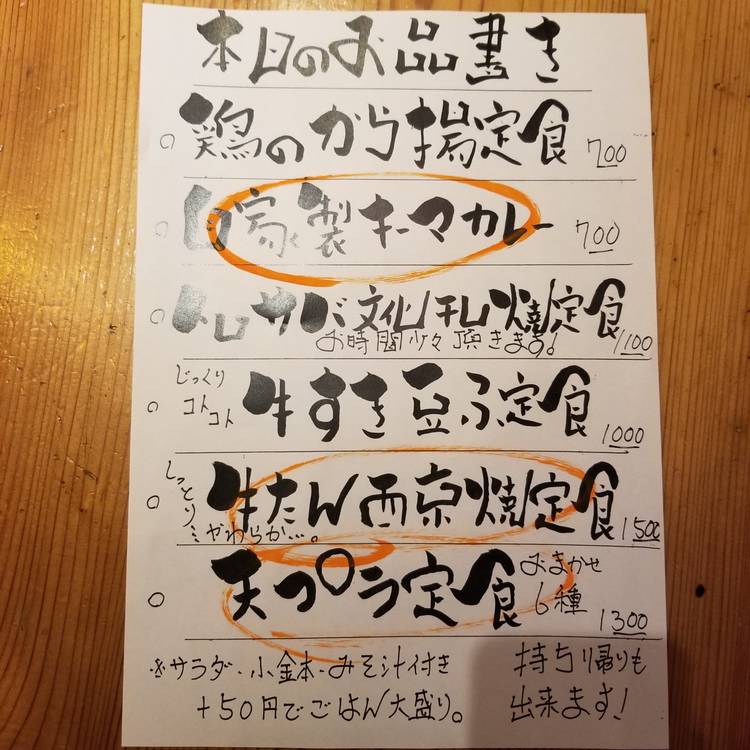 本日のお品書き
鶏のから揚定食 700
自家製キーマカレー 700
トロサバ文化干し焼定食 1100
お時間少々頂きます!
じっくり
コトコト
牛すき豆ふ定食 1000
しっとり
やわらか…。
牛たん西京焼定食 1500
天プラ定食 1300
おまかせ
6種
※サラダ・小鉢・みそ汁付き
+50円でごはん大盛り。
持ち帰りも
出来ます!